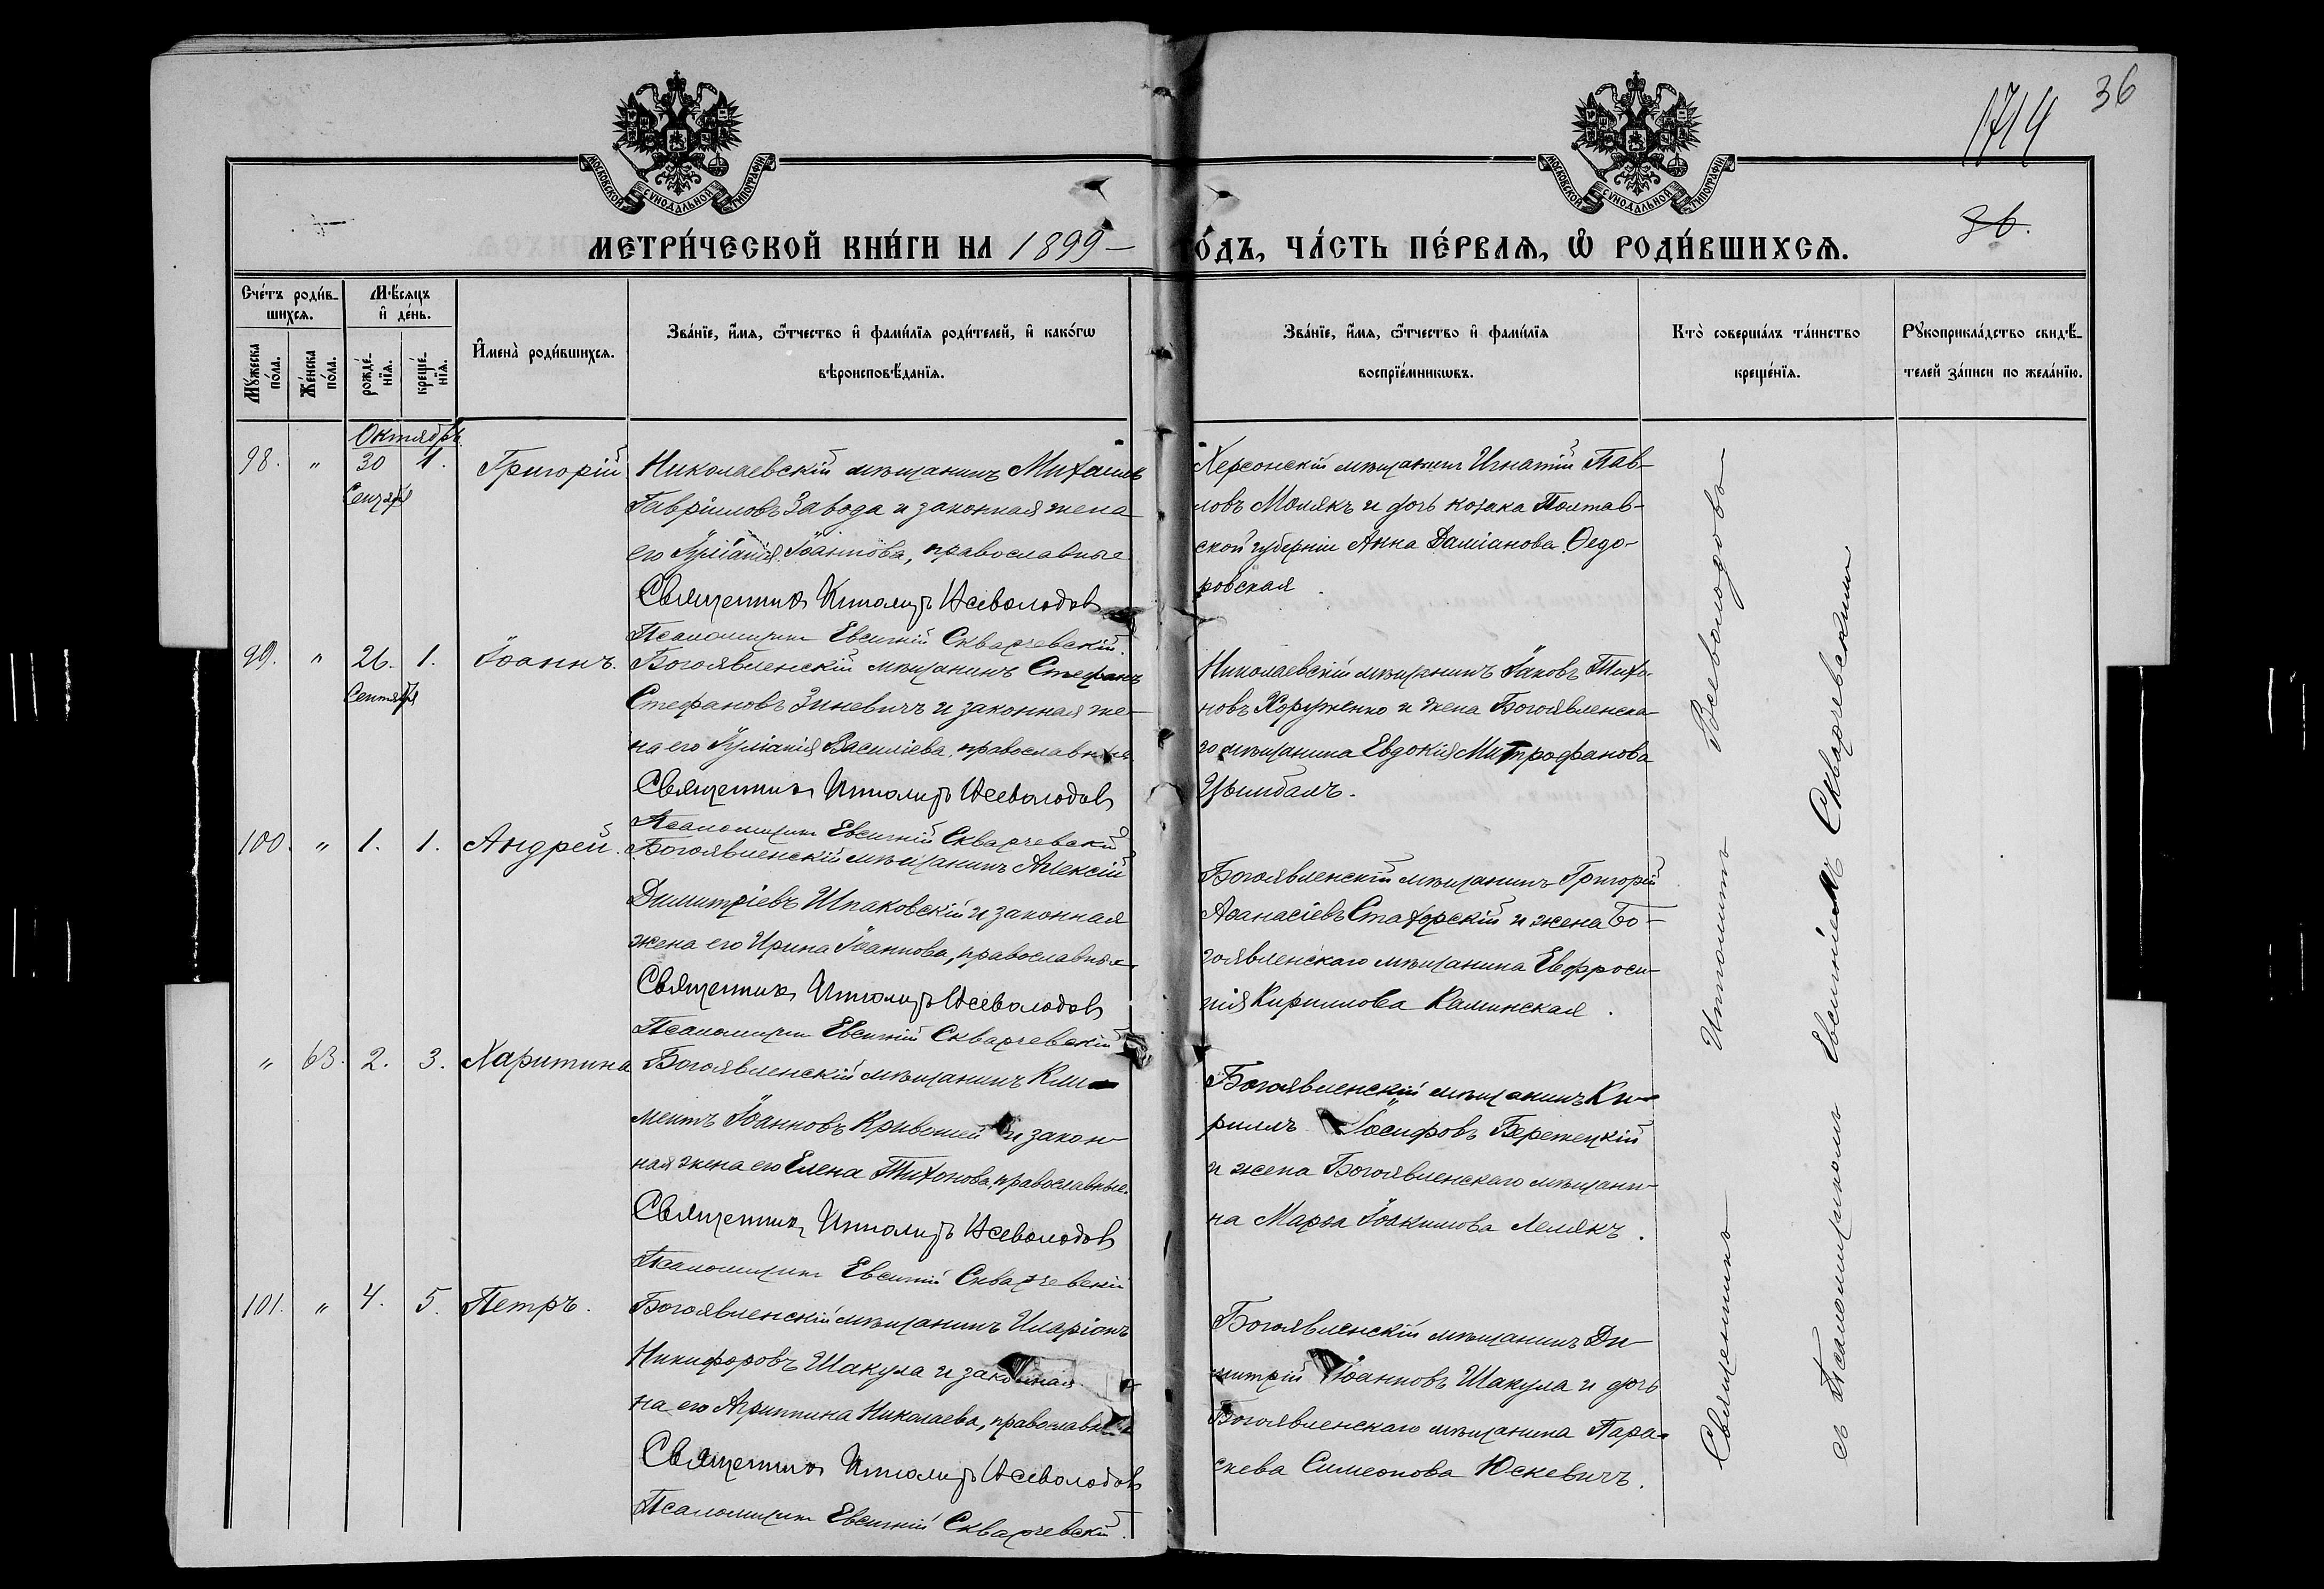 36
1714
МОСКОВСКОЙ СѴНОДАЛЬНОЙ ТИПОГРАФІИ
МОСКОВСКОЙ СѴНОДАЛЬНОЙ ТИПОГРАФІИ
36.
МЕТРИ́ЧЕСКОЙ КНИ́ГИ НА 1899 —
О́ДЪ, ЧА́СТЬ ПЕ́РВАѦ, Ѿ РОДИ́ВШИХСѦ.
Сче́тъ роди́в-
шихсѧ.
Мꙋжеска по́ла.
Же́нска по́ла.
М́ѣсѧцъ
и҆ де́нь.
рожде́-
нїѧ.
креще́-
нїѧ.
И҆мена̀ роди́вшихсѧ.
Зва́нїе, и҆́мѧ, ѻ҆́тчество и҆ фами́лїѧ роди́телей, и҆ како́гѡ
вѣроисповѣ́данїѧ.
Зва́нїе, и҆́мѧ, ѻ҆́тчество и҆ фами́лїѧ
воспрїе́мникѡвъ.
Кто̀ соверша́лъ та́инство
креще́нїѧ.
Рꙋкоприкла́дство свидѣ́-
телей за́писи по жела́нїю.
Октябрь
98. " 30 1. Григорій
Сентября
Николаевскій мѣщанинъ Михаилъ
Гавріиловъ Завода и законная жена
его Іуліанія Іоаннова, православные
Священникъ Ипполитъ Всеволодовъ
Псаломщикъ Евсигній Скварчевскій.
Херсонскій мѣщанинъ Игнатій Пав-
ловъ Молякъ и дочь козака Полтав-
ской губерніи Анна Даміанова Ѳедо-
ровская.
99. " 26. 1. Іоаннъ.
Сентября
Богоявленскій мѣщанинъ Стефанъ
Стефановъ Зиневичъ и законная же-
на его Іуліанія Василіева, православные
Священникъ Ипполитъ Всеволодовъ
Псаломщикъ Евсигній Скварчевскій
Николаевскій мѣщанинъ Іаковъ Тихо-
новъ Хоруженко и жена Богоявленска-
го мѣщанина Евдокія Митрофанова
Цымбалъ.
100. " 1. 1. Андрей.
Богоявленскій мѣщанинъ Алексій
Димитріевъ Шпаковскій и законная
жена его Ирина Іоаннова, православные
Священникъ Ипполитъ Всеволодовъ
Псаломщикъ Евсигній Скварчевскій
Богоявленскій мѣщанинъ Григорій
Аѳанасіевъ Стахорскій и жена Бо-
гоявленскаго мѣщанина Евфроси-
нія Кириллова Калинская.
" 63. 2. 3. Харитина
Богоявленскій мѣщанинъ Кли-
ментъ Іоанновъ Кривошей и закон-
ная жена его Елена Тихонова, православные.
Священникъ Ипполитъ Всеволодовъ
Псаломщикъ Евсигній Скварчевскій
Богоявленскій мѣщанинъ Ки-
риллъ Іосифовъ Бережецкій
и жена Богоявленскаго мѣщани-
на Марѳа Іоакимова Лемякъ.
101. " 4. 5. Петръ.
Богоявленскій мѣщанинъ Иларіонъ
Никифоровъ Шакула и законная
на его Агриппина Николаева, православные
Священникъ Ипполитъ Всеволодовъ
Псаломщикъ Евсигній Скварчевскій.
Богоявленскій мѣщанинъ Ди-
митрій Іоанновъ Шакула и дочь
Богоявленскаго мѣщанина Пара-
скева Симеонова Юскевичъ.
Священникъ Ипполитъ Всеволодовъ
съ Псаломщикомъ Евсигніемъ Скварчевскимъ